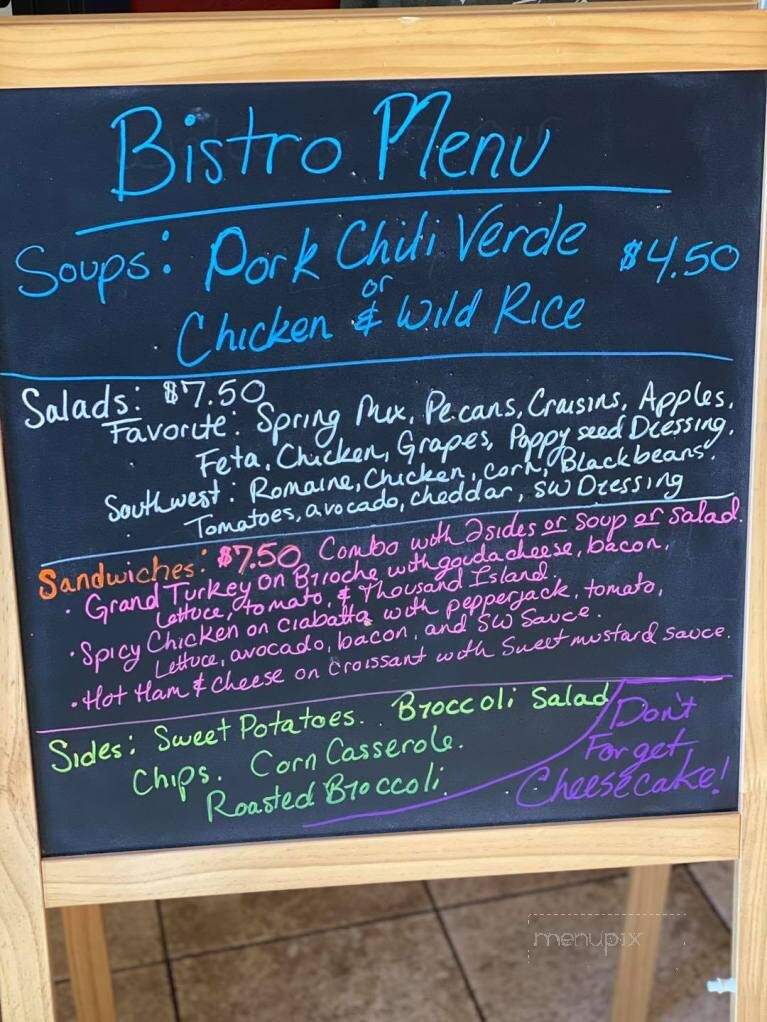 Bistro Menu
Soups: Pork Chili Verde $4.50
or
Chicken & Wild Rice
Salads: $7.50
Favorite: Spring Mix, Pecans, Craisins, Apples,
Feta, Chicken, Grapes, Poppyseed Dressing.
Southwest: Romaine, Chicken, corn, Blackbeans.
Tomatoes, avocado, cheddar, SW Dressing
Sandwiches: $7.50 Combo with 2 sides or soup or salad.
• Grand Turkey on Brioche with gouda cheese, bacon,
lettuce, tomato, & Thousand Island.
• Spicy Chicken on ciabatta with pepperjack, tomato,
lettuce, avocado, bacon, and SW Sauce.
• Hot Ham & Cheese on Croissant with Sweet mustard sauce.
Sides: Sweet Potatoes. Broccoli Salad
Chips. Corn Casserole.
Roasted Broccoli.
Don't
Forget
Cheesecake!
menupix